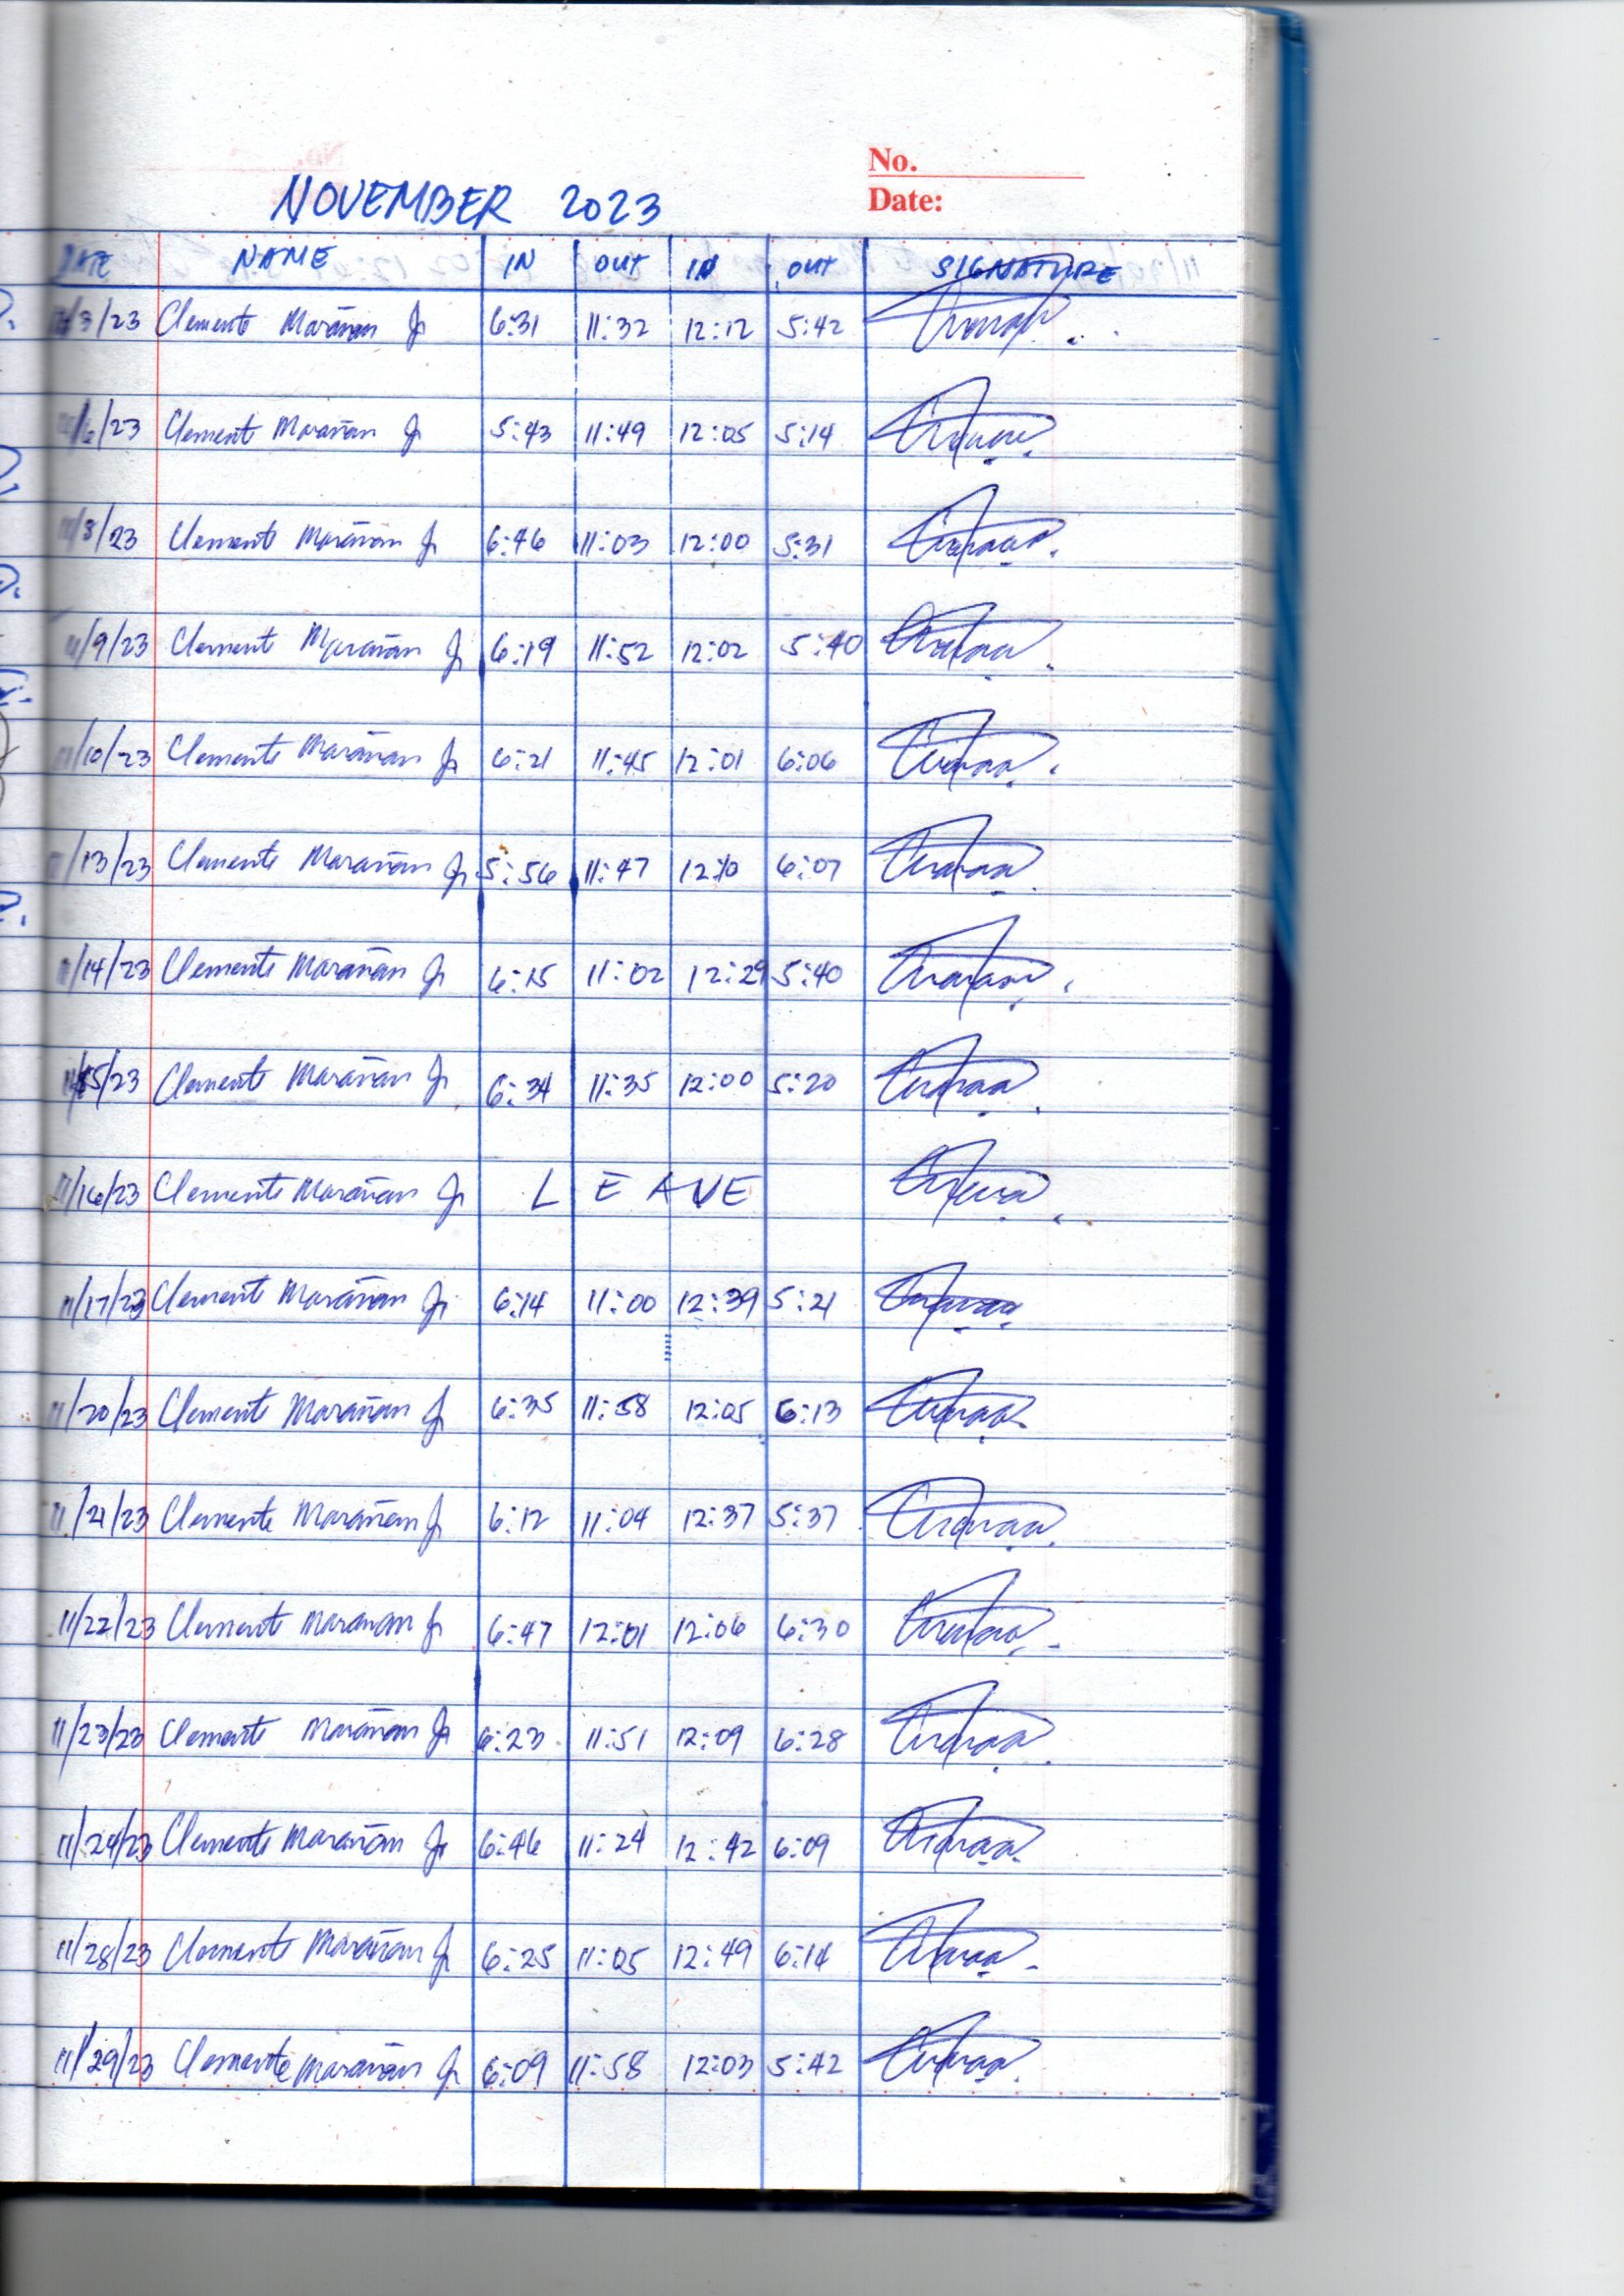 No.
Date:
NOVEMBER 2023
DATE NAME IN OUT IN OUT SIGNATURE
/3/23 Clemente Marañan Jr 6:31 11:32 12:12 5:42
/6/23 Clemente Marañan Jr 5:43 11:49 12:05 5:14
11/8/23 Clemente Marañan Jr 6:46 11:03 12:00 5:31
11/9/23 Clemente Marañan Jr 6:19 11:52 12:02 5:40
11/10/23 Clemente Marañan Jr 6:21 11:45 12:01 6:06
11/13/23 Clemente Marañan Jr 5:56 11:47 12:10 6:07
11/14/23 Clemente Marañan Jr 6:15 11:02 12:29 5:40
11/15/23 Clemente Marañan Jr 6:34 11:35 12:00 5:20
11/16/23 Clemente Marañan Jr LEAVE
11/17/23 Clemente Marañan Jr 6:14 11:00 12:39 5:21
11/20/23 Clemente Marañan Jr 6:35 11:58 12:05 6:13
11/21/23 Clemente Marañan Jr 6:12 11:04 12:37 5:37
11/22/23 Clemente Marañan Jr 6:47 12:01 12:06 6:30
11/23/23 Clemente Marañan Jr 6:23 11:51 12:09 6:28
11/24/23 Clemente Marañan Jr 6:46 11:24 12:42 6:09
11/28/23 Clemente Marañan Jr 6:25 11:05 12:49 6:14
11/29/23 Clemente Marañan Jr 6:09 11:58 12:03 5:42